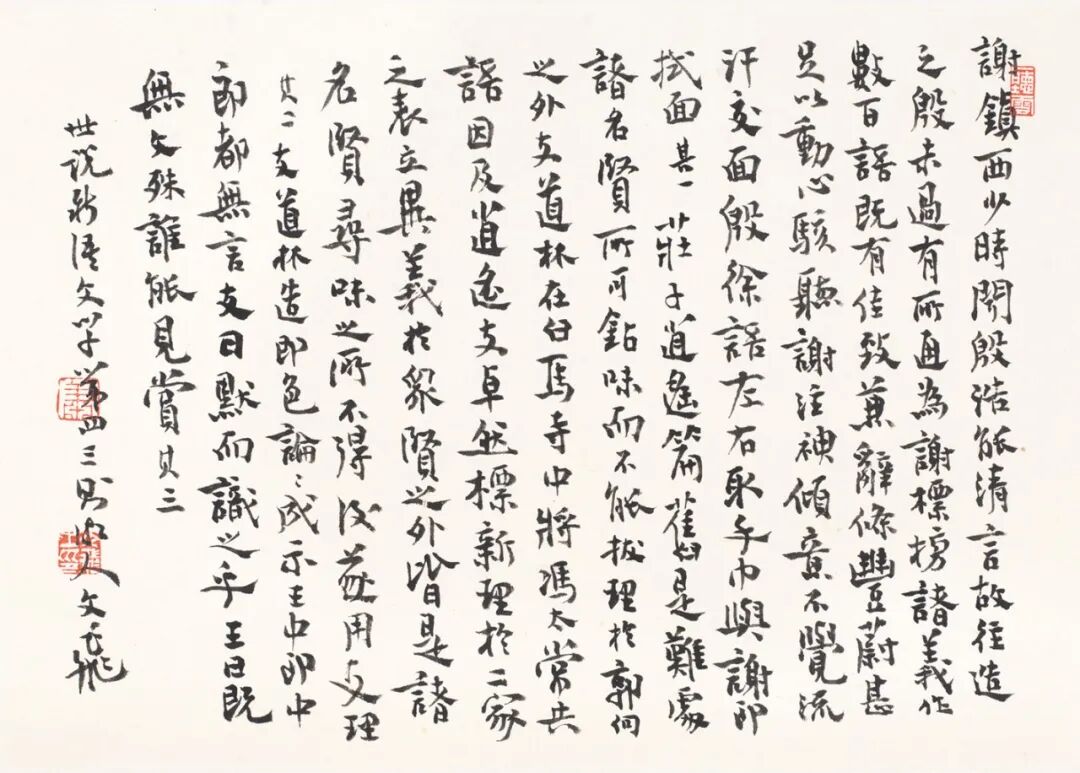 謝鎮西少時聞殷浩能清言故往造
之殷未過有所通為謝標榜諸義作
數百語既有佳致兼辭條豐蔚甚
足以動心駭聽謝注神傾意不覺流
汗交面殷徐語左右取手巾與謝郎
拭面其一 莊子逍遙篇舊是難處
諸名賢所可鑽味而不能拔理於郭向
之外支道林在白馬寺中將馮太常共
語因及逍遙支卓然標新理於二家
之表立異義於眾賢之外皆是諸
名賢尋味之所不得後遂用支理
其二 支道林造即色論〻成示王中郎中
郎都無言支曰默而識之乎王曰既
無文殊誰能見賞其三
世說新語文學第四三則 人文飛